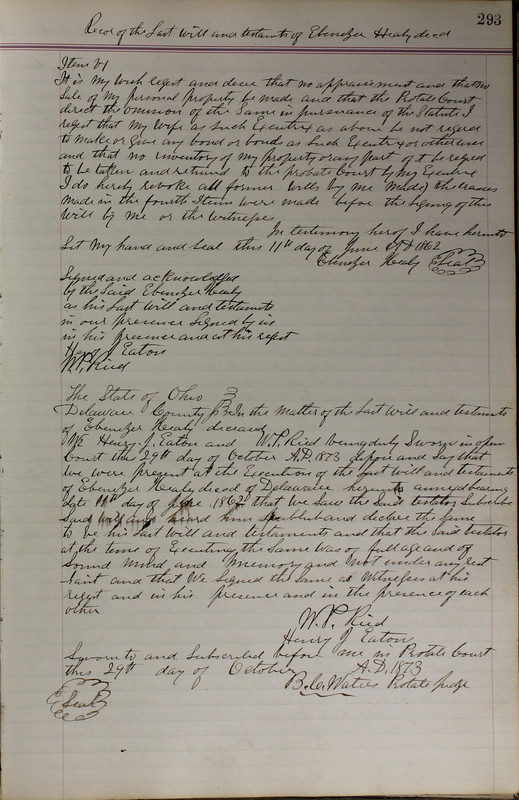 293
Recor of the Last Will and testaments of Ebenezer Healy decd
Item 6
It is my wish and that no appraisement and that no
Sale of My personal Property be made and that the Probate Court
direct the omission of the Same in pursurance of the Statute I
regest that My Wife as Such Executrix as above be not reqred
to make or Give any bond or bonds as Such Executrix or otherwise
and that no inventory of my property or any part of it be reqred
to be taken and returned to the probate Court by my Executrix
I do hereby revoke all former wills by me Made) the erasures
made in the fourth Item were made before the Signing of this
Will by Me or the Witnesses
In testimony herof I have hereunto
Set My hand and Seal this 11th day of June AD 1862
Ebenezer Healy Seal
Signed and acknowledged
by the Said Ebenezer Healy
as his Last Will and testaments
in our presence Signed by us
in his presence and at his regest
Henry J. Eaton
W.P. Ried
The State of Ohio
Delaware County In the Matter of the Last Will and testaments
of Ebenezer Healy deceased
We Henry J. Eaton and W.P. Ried being duly Sworn in open
Court this 29th day of October A.D. 1873 depose and Say that
We were present at the Execution of the Last Will and testaments
of Ebenezer Healy decsd of Delaware hereunto annexed bearing
date 11th day of June 1862 that we Saw the Said testator Subscribe
Said will and heard him publish and declare the Same
to be his Last Will and testaments and that the Said testator
at the time of Executing the Same was of full age and of
Sound Mind and Memory and Not under any rest
raint and that We Signed the Same as Witnesses at his
regest and in his presence and in the presence of each
other
W.P. Ried
Henry J. Eaton
Sworn to and Subscribed before me in Probate Court
this 29th day of October A.D. 1873
B.C. Waters Probate Judge
Seal